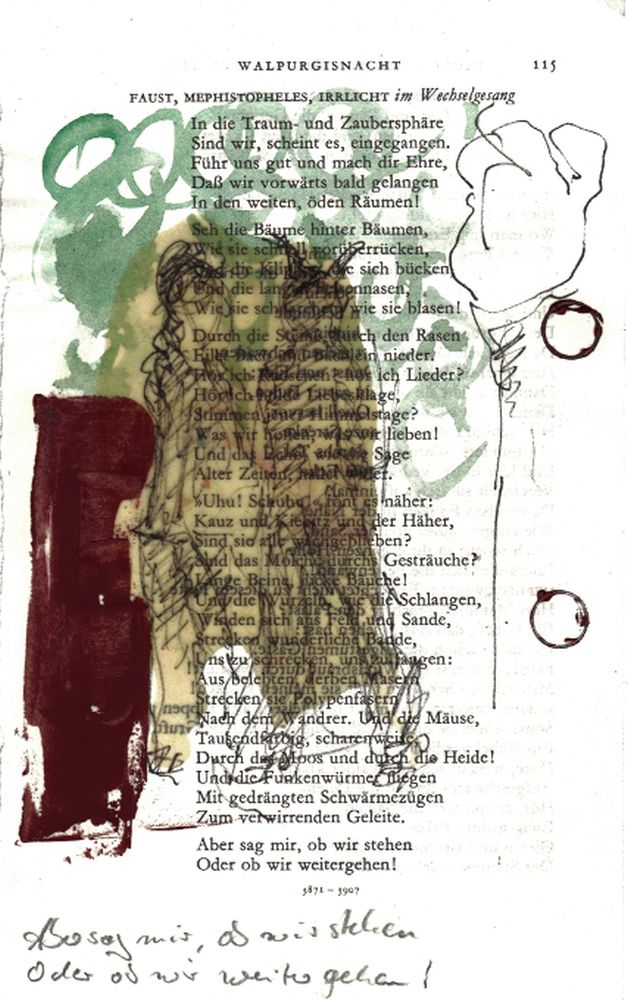 WALPURGISNACHT 115
FAUST, MEPHISTOPHELES, IRRLICHT im Wechselgesang
In die Traum- und Zaubersphäre
Sind wir, scheint es, eingegangen.
Führ uns gut und mach dir Ehre,
Daß wir vorwärts bald gelangen
In den weiten, öden Räumen!
Seh die Bäume hinter Bäumen,
Wie sie schnell vorüberrücken,
Und die Klippen, die sich bücken,
Und die langen Felsennasen,
Wie sie schnarchen, wie sie blasen!
Durch die Steine, durch den Rasen
Eilet Bach und Bächlein nieder.
Hör ich Rauschen? hör ich Lieder?
Hör ich holde Liebesklage,
Stimmen jener Himmelstage?
Was wir hoffen, was wir lieben!
Und das Echo, wie die Sage
Alter Zeiten, hallet wider.
»Uhu! Schuhu!« tönt es näher:
Kauz und Kiebitz und der Häher,
Sind sie alle wach geblieben?
Sind das Molche durchs Gesträuche?
Lange Beine, dicke Bäuche!
Und die Wurzeln, wie die Schlangen,
Winden sich aus Fels und Sande,
Strecken wunderliche Bande,
Uns zu schrecken, uns zu fangen:
Aus belebten, derben Masern
Strecken sie Polypenfasern
Nach dem Wandrer. Und die Mäuse,
Tausendfärbig, scharenweise,
Durch das Moos und durch die Heide!
Und die Funkenwürmer fliegen
Mit gedrängten Schwärmezügen
Zum verwirrenden Geleite.
Aber sag mir, ob wir stehen
Oder ob wir weitergehen!
3871 – 3907
Aber sag mir, ob wir stehen
Oder ob wir weitergehen!